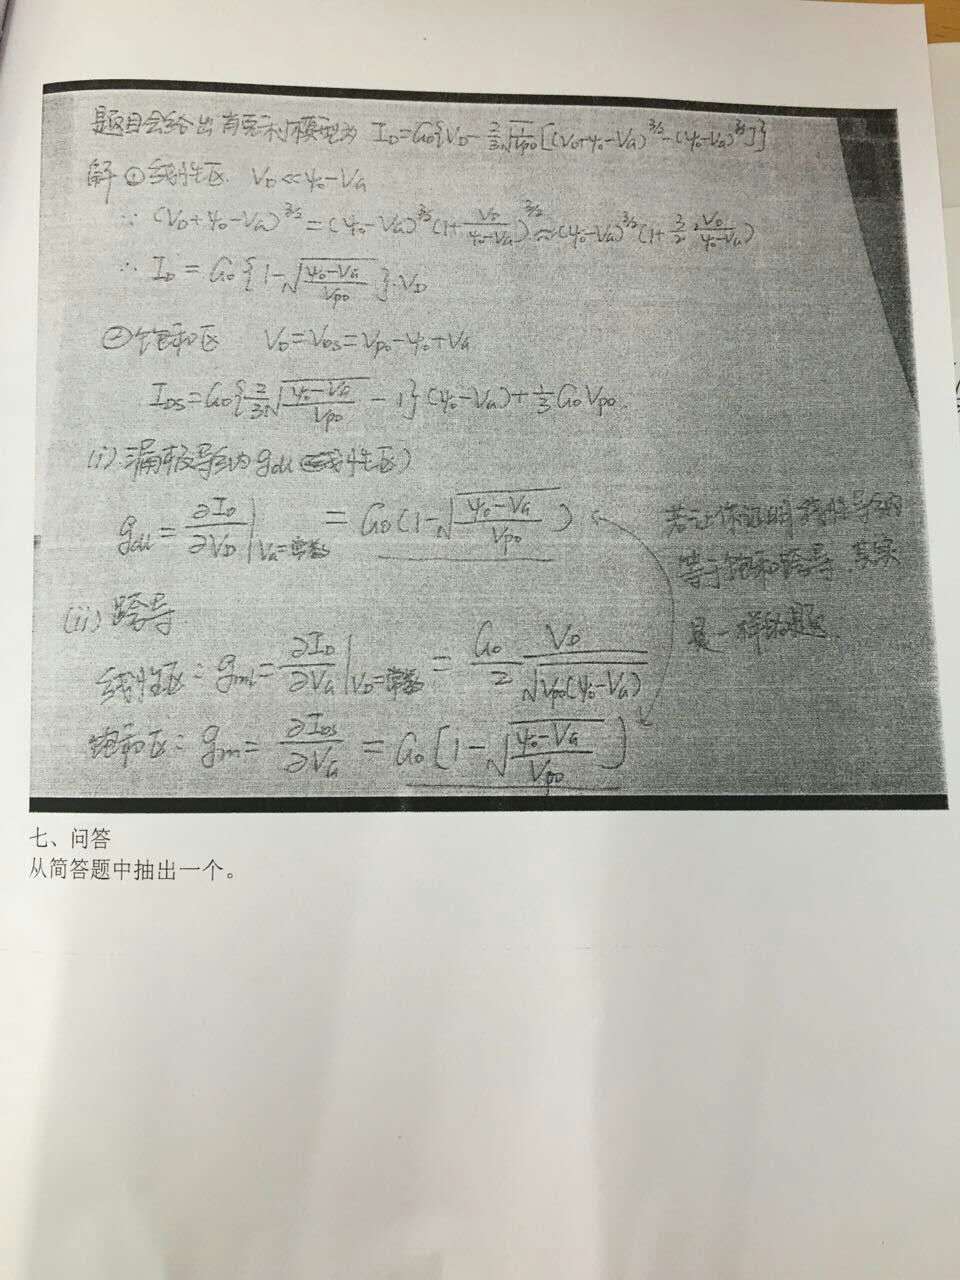 题目会给出肖克利模型为 I_D=G₀{V_D-\frac{2}{3}\sqrt{\frac{1}{V_{p0}}}[(V_D+ψ₀-V_G)^{3/2}-(ψ₀-V_G)^{3/2}]}
解 ①线性区 V_D≪ψ₀-V_G
∵ (V_D+ψ₀-V_G)^{3/2}=(ψ₀-V_G)^{3/2}(1+\frac{V_D}{ψ₀-V_G})^{3/2}≈(ψ₀-V_G)^{3/2}(1+\frac{3}{2}\frac{V_D}{ψ₀-V_G})
∴ I_D=G₀{1-\sqrt{\frac{ψ₀-V_G}{V_{p0}}}}·V_D
②饱和区 V_D=V_{DS}=V_{p0}-ψ₀+V_G
I_{DS}=G₀{\frac{2}{3}\sqrt{\frac{ψ₀-V_G}{V_{p0}}}-1}(ψ₀-V_G)+\frac{1}{3}G₀V_{p0}
(i)漏极导纳g_{dl}(线性区)
g_{dl}=\frac{∂I_D}{∂V_D}|_{V_G=常数}=G₀(1-\sqrt{\frac{ψ₀-V_G}{V_{p0}}})
若让你证明线性导纳
等于饱和跨导,其实
是一样的题
(ii)跨导
线性区:g_{ml}=\frac{∂I_D}{∂V_G}|_{V_D=常数}=\frac{G₀}{2}\frac{V_D}{\sqrt{V_{p0}(ψ₀-V_G)}}
饱和区:g_m=\frac{∂I_{DS}}{∂V_G}=G₀[1-\sqrt{\frac{ψ₀-V_G}{V_{p0}}}]
七、问答
从简答题中抽出一个。